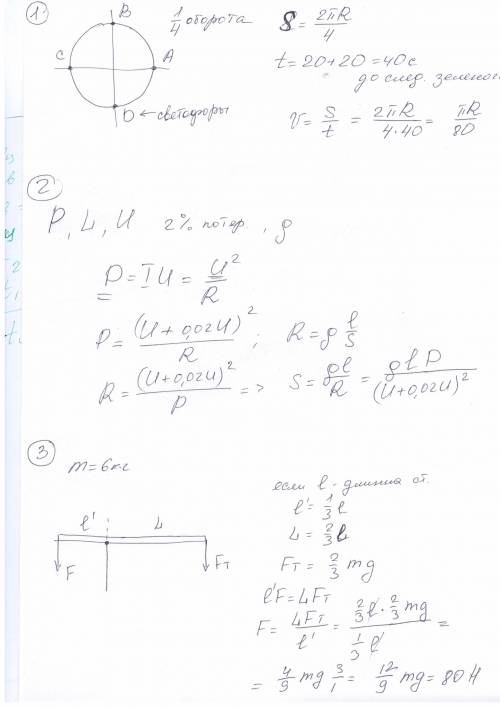 1
B
C
A
D ← светофоры
1/4 оборота
S = 2πR/4
t = 20+20 = 40 с
до след. зеленого
V = S/t = 2πR/4·40 = πR/80
2
P, L, U 2% потер., ρ
P = IU = U²/R
P = (U+0,02U)²/R ; R = ρ l/S
R = (U+0,02U)²/P => S = ρl/R = ρlP/(U+0,02U)²
3
m = 6кг
l' L
F Fт
если l - длинна от.
l' = 1/3 l
L = 2/3 l
Fт = 2/3 mg
l'F = LFт
F = LFт/l' = 2/3 l · 2/3 mg / 1/3 l =
= 4/9 mg 3/1 = 12/9 mg = 80 Н